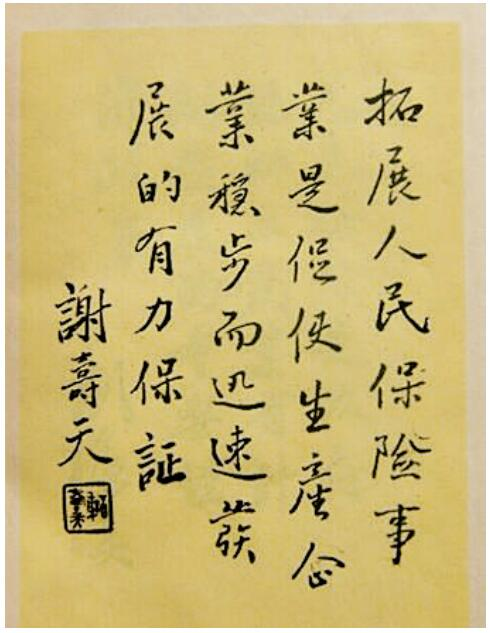 拓展人民保险事
業是促使生產企
業穩步而迅速蕟
展的有力保証
謝壽天